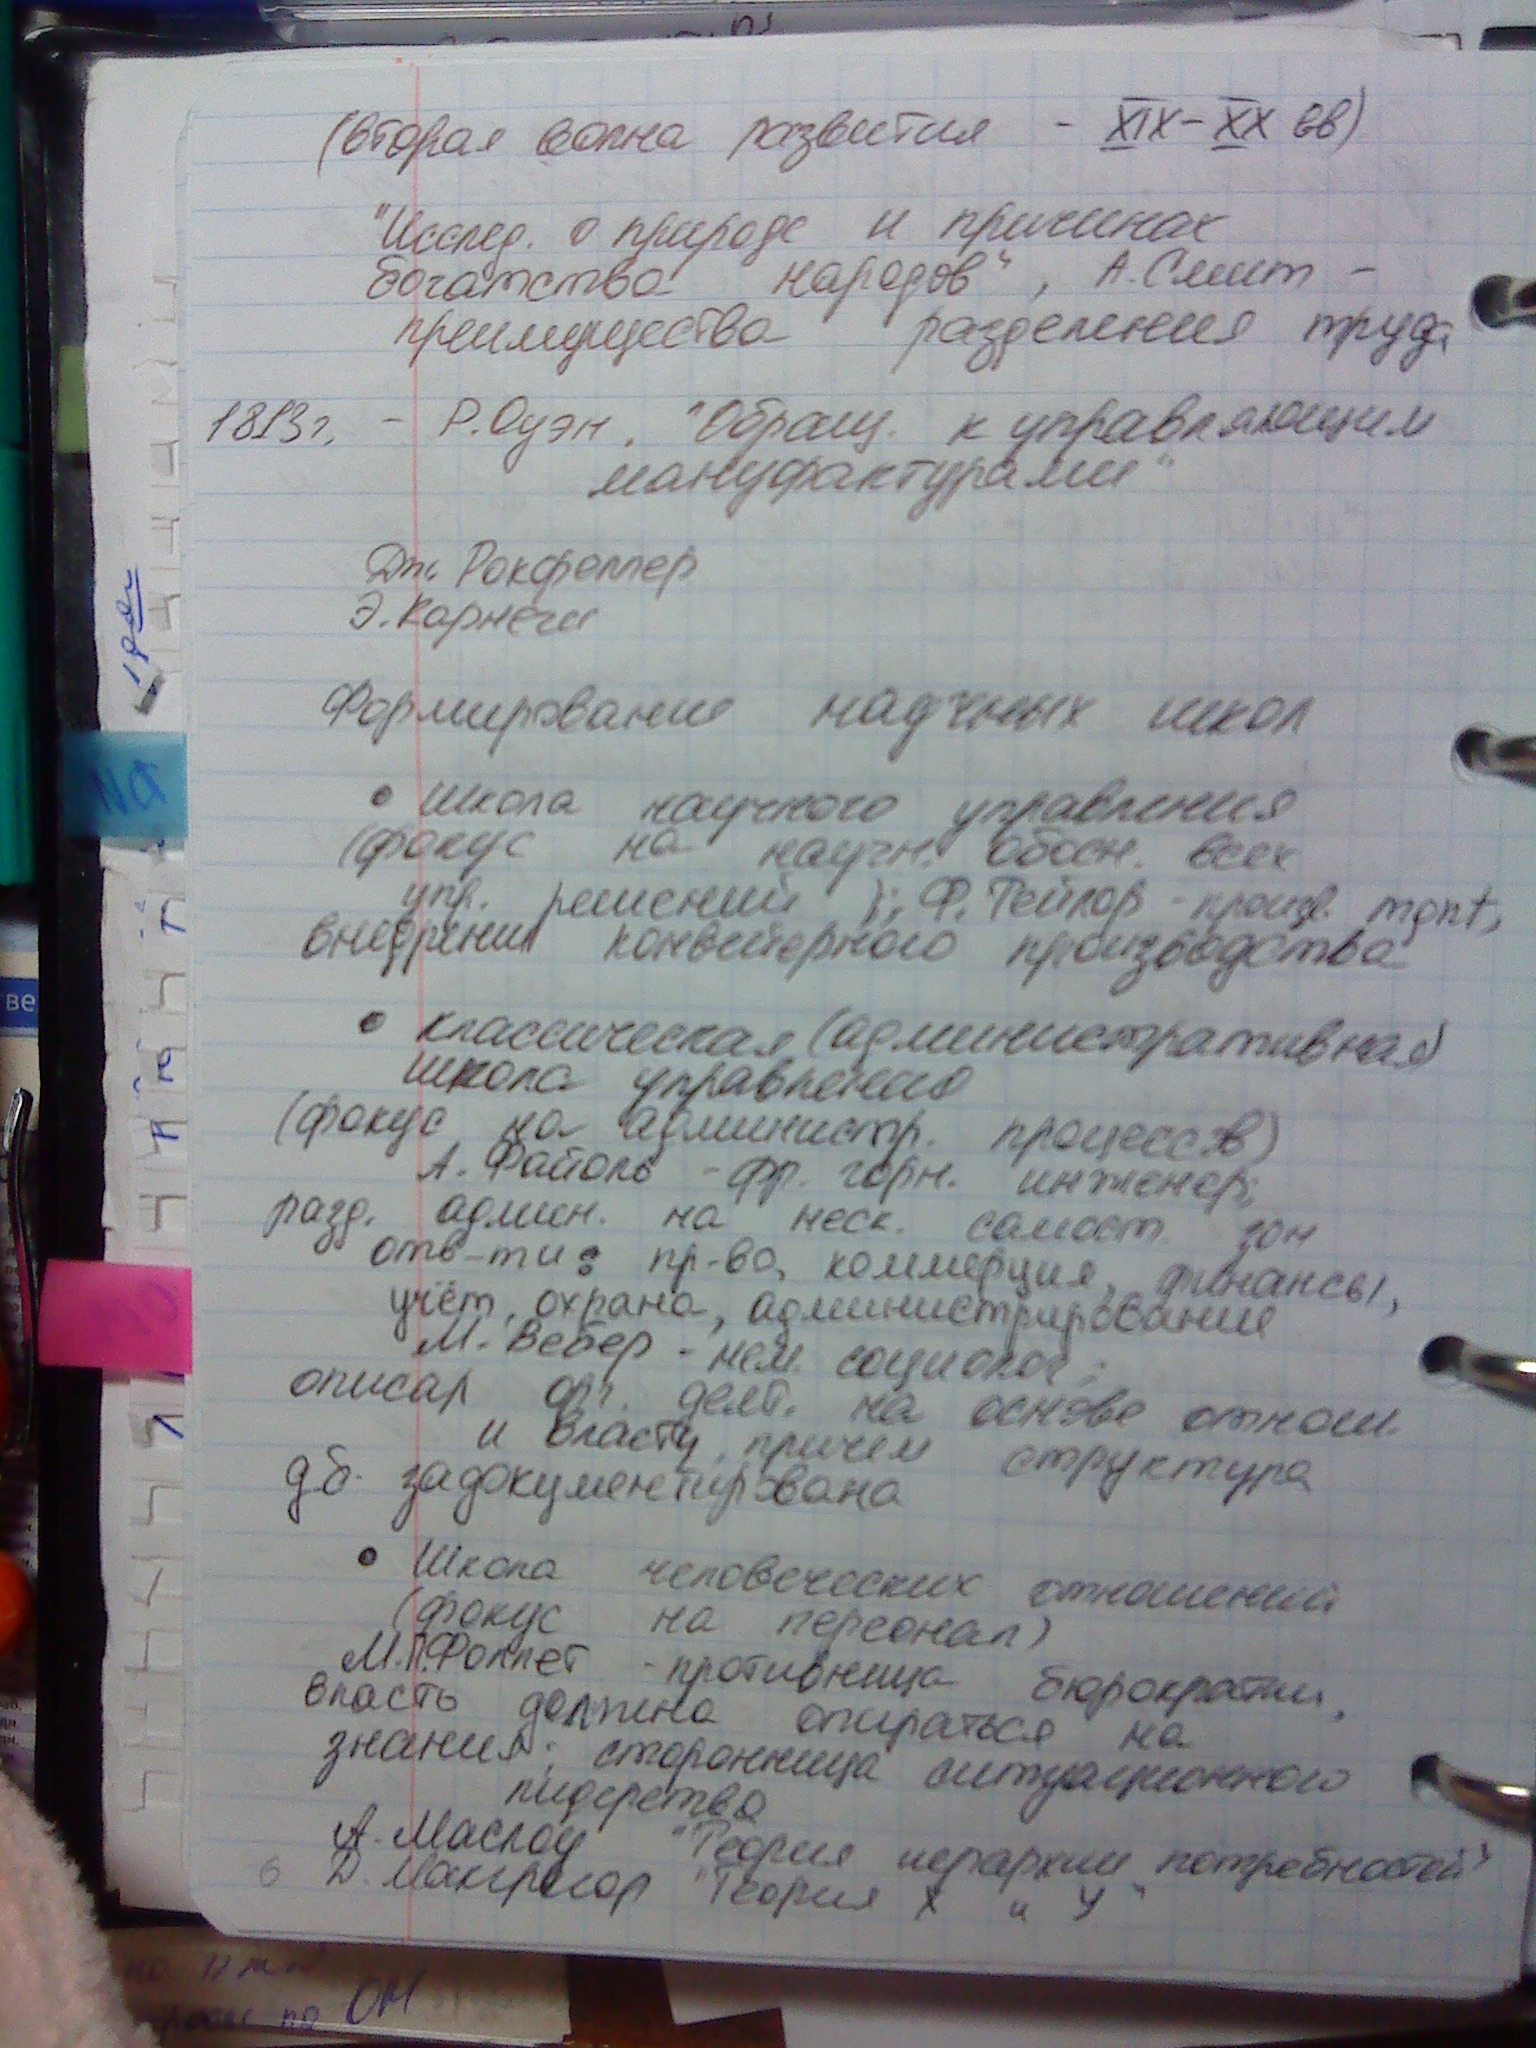 (вторая волна развития - XIX-XX вв)
"Исслед. о природе и причинах
богатства народов", А.Смит -
преимущества разделения труда
1813г. - Р.Оуэн. "Обращ. к управляющим
мануфактурами"
Дж. Рокфеллер
Э.Карнеги
Формирование научных школ
• школа научного управления
(фокус на научн. обосн. всех
упр. решений); Ф.Тейлор - произв. mgnt,
внедрение конвейерного производства
• классическая (административная)
школа управления
(фокус на администр. процессов)
А. Файоль - фр. горн. инженер;
разд. админ. на неск. самост. зон
отв-ти: пр-во, коммерция, финансы,
учёт, охрана, администрирование
М. Вебер - нем. социолог;
описал орг. деят. на основе отнош.
и власти, причем структура
д.б. задокументирована
• Школа человеческих отношений
(фокус на персонал)
М.П.Фоллет - противница бюрократии,
власть должна опираться на
знания; сторонница ситуационного
лидерства
А.Маслоу "Теория иерархии потребностей"
6 Д. Макгрегор "Теория X и У"
ве
по
ОМ